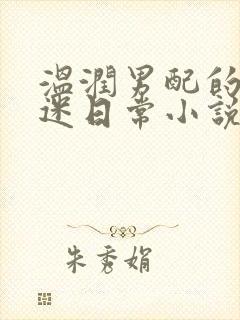 溫潤男配的
迷日常小說
朱秀娟